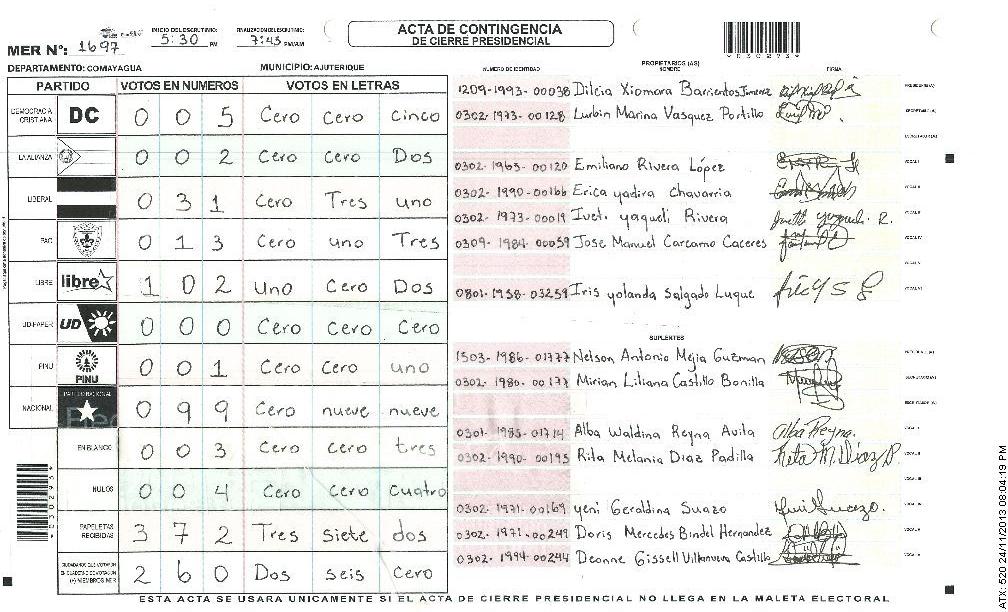 MER Nº: 1697
INICIO DEL ESCRUTINIO: 5:30 PM
FINALIZACION DEL ESCRUTINIO: 7:43 PM/AM
ACTA DE CONTINGENCIA
DE CIERRE PRESIDENCIAL
*030293*
DEPARTAMENTO: COMAYAGUA
MUNICIPIO: AJUTERIQUE
PARTIDO VOTOS EN NUMEROS VOTOS EN LETRAS
DEMOCRACIA CRISTIANA DC 0 0 5 Cero Cero Cinco
LA ALIANZA 0 0 2 Cero Cero Dos
LIBERAL 0 3 1 Cero Tres uno
PAC 0 1 3 Cero uno Tres
LIBRE libre 1 0 2 uno Cero Dos
UD-FAPER UD 0 0 0 Cero Cero Cero
PINU PINU 0 0 1 Cero Cero uno
NACIONAL PARTIDO NACIONAL 0 9 9 Cero nueve nueve
EN BLANCO 0 0 3 Cero Cero tres
NULOS 0 0 4 Cero Cero cuatro
PAPELETAS RECIBIDAS 3 7 2 Tres siete dos
CIUDADANOS QUE VOTARON EN CUADERNO DE VOTACION (+) MIEMBROS MER 2 6 0 Dos seis Cero
*030293*
NUMERO DE IDENTIDAD
PROPIETARIOS (AS)
NOMBRE
FIRMA
1209-1993-00038 Dilcia Xiomara Barrientos Jimenez PRESIDENTE(A)
0302-1973-00128 Lurbin Marina Vasquez Portillo SECRETARIO(A)
ESCRUTADOR(A)
0302-1965-00120 Emiliano Rivera López VOCAL I
0302-1990-00166 Erica yadira Chavarria VOCAL II
0302-1973-00019 Ivet. yaqueli Rivera VOCAL III
0309-1984-00059 Jose Manuel Carcamo Caceres VOCAL IV
VOCAL V
0801-1958-03259 Iris yolanda Salgado Luque VOCAL VI
SUPLENTES
1503-1986-01777 Nelson Antonio Mejia Guzman PRESIDENTE(A)
0302-1980-00177 Mirian Liliana Castillo Bonilla SECRETARIO(A)
ESCRUTADOR(A)
0301-1985-01714 Alba Waldina Reyna Avila Alba Reyna. VOCAL I
0302-1990-00195 Rita Melania Diaz Padilla Rita M. Diaz P. VOCAL II
VOCAL III
0302-1971-00169 yeni Geraldina Suazo VOCAL IV
0302-1971-00249 Doris Mercedes Bindel Hernandez VOCAL V
0302-1994-00244 Deonne Gissell Villanueva Castillo VOCAL VI
ESTA ACTA SE USARA UNICAMENTE SI EL ACTA DE CIERRE PRESIDENCIAL NO LLEGA EN LA MALETA ELECTORAL
ATX: 520 24/11/2013 08:04:19 PM